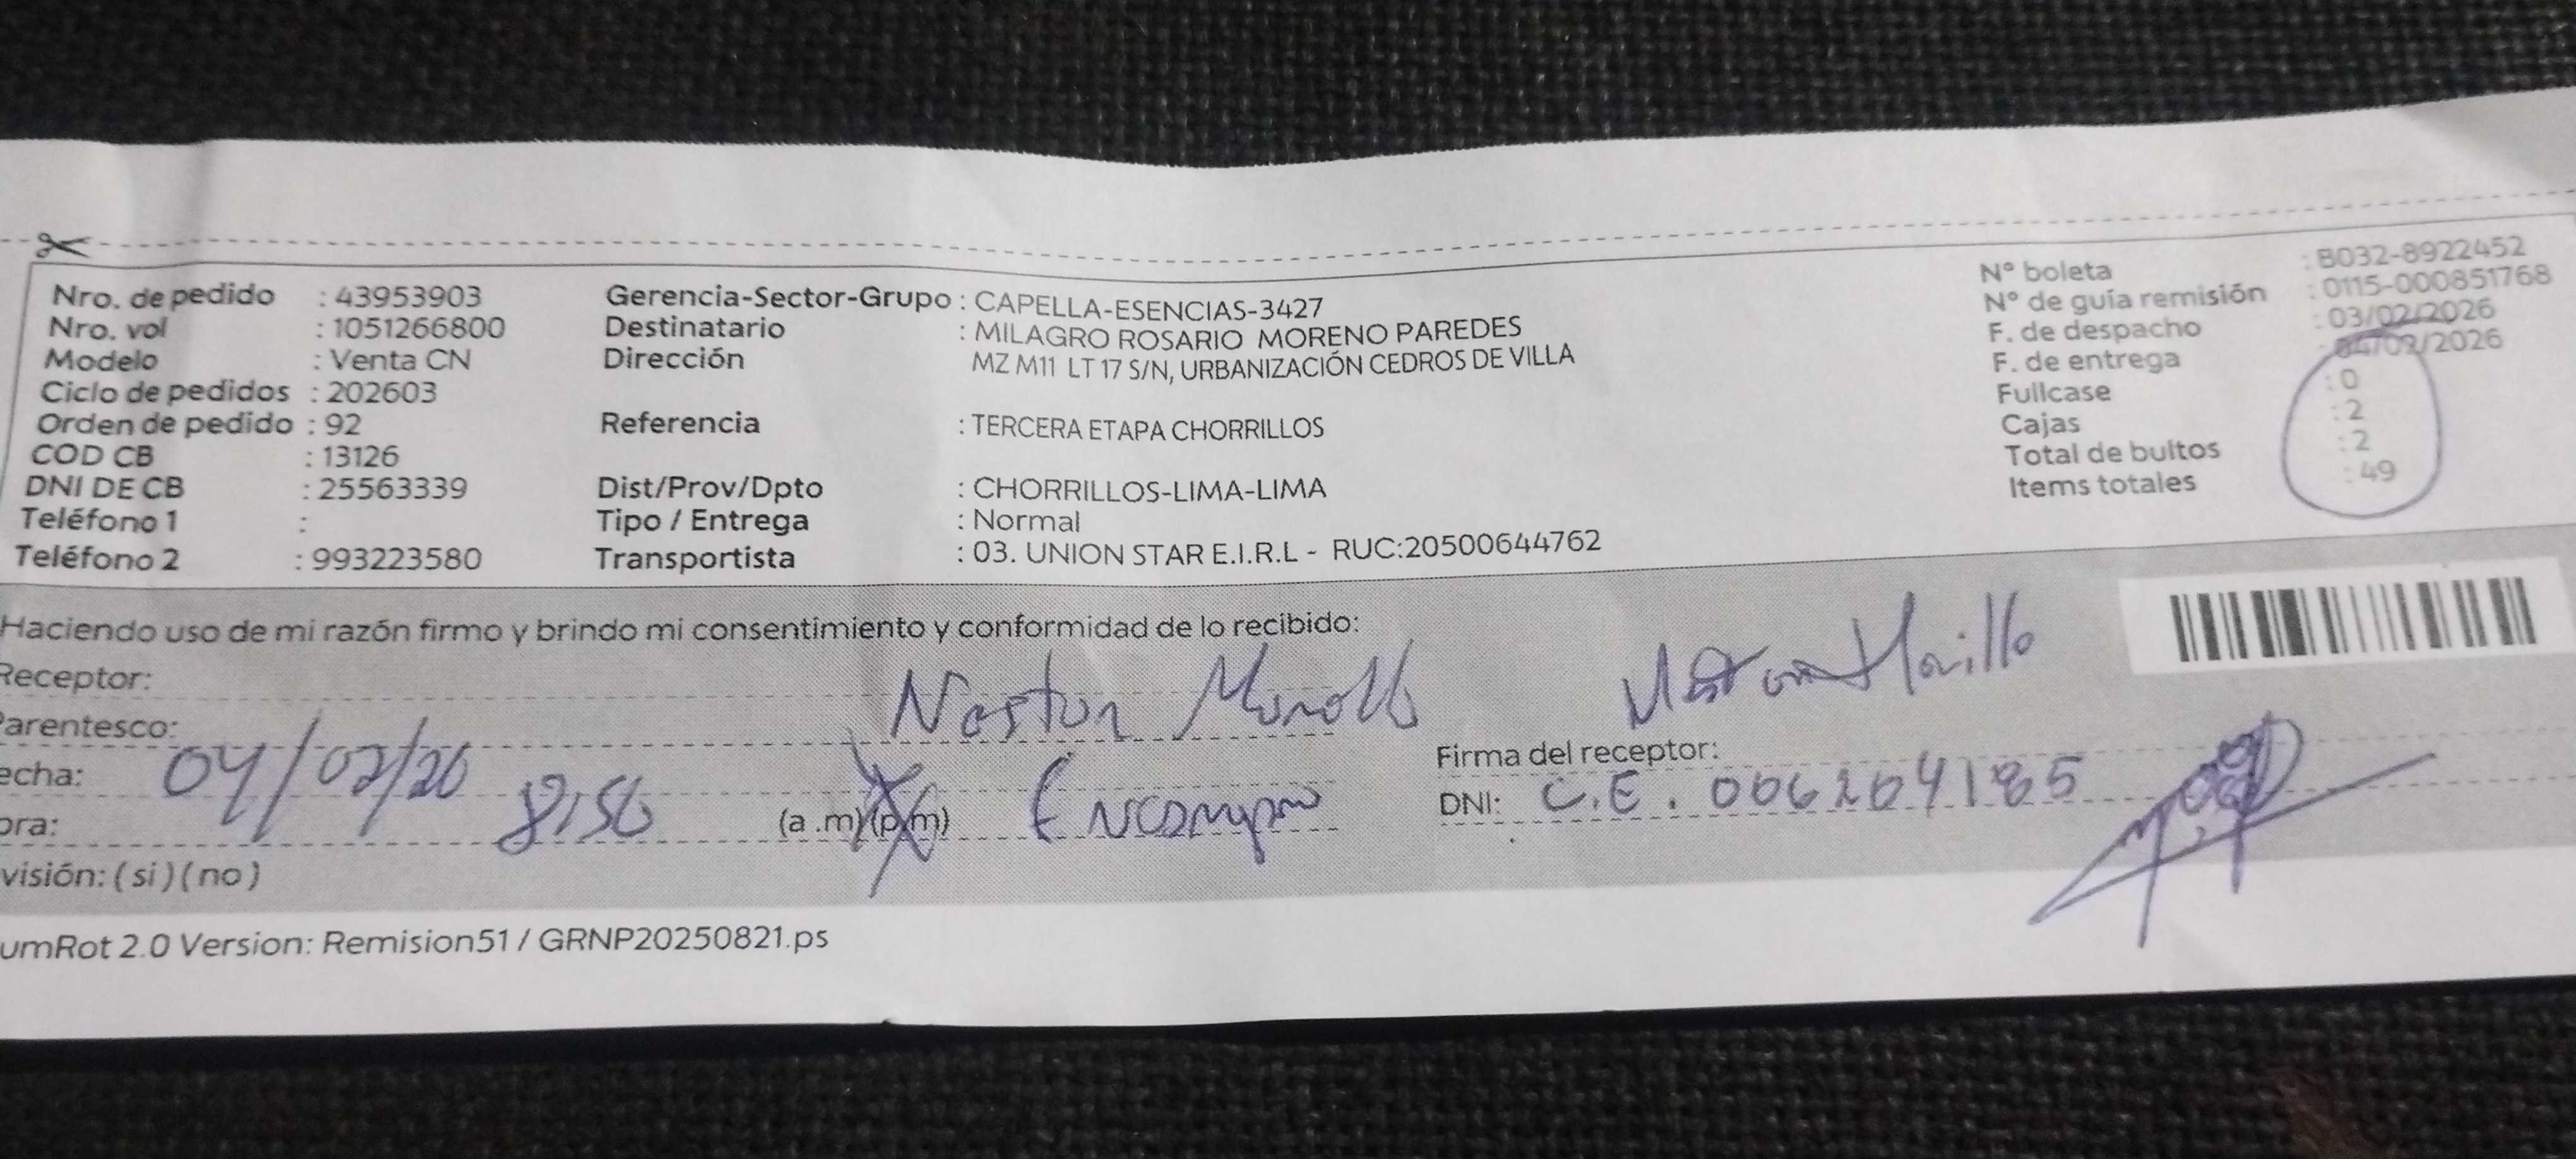 Nro. de pedido : 43953903
Nro. vol : 1051266800
Modelo : Venta CN
Ciclo de pedidos : 202603
Orden de pedido : 92
COD CB : 13126
DNI DE CB : 25563339
Teléfono 1 :
Teléfono 2 : 993223580
Gerencia-Sector-Grupo : CAPELLA-ESENCIAS-3427
Destinatario : MILAGRO ROSARIO MORENO PAREDES
Dirección MZ M11 LT 17 S/N, URBANIZACIÓN CEDROS DE VILLA
Referencia : TERCERA ETAPA CHORRILLOS
Dist/Prov/Dpto : CHORRILLOS-LIMA-LIMA
Tipo / Entrega : Normal
Transportista : 03. UNION STAR E.I.R.L - RUC:20500644762
N° boleta : B032-8922452
N° de guía remisión : 0115-000851768
F. de despacho : 03/02/2026
F. de entrega : 04/02/2026
Fullcase : 0
Cajas : 2
Total de bultos : 2
Items totales : 49
Haciendo uso de mi razón firmo y brindo mi consentimiento y conformidad de lo recibido:
Receptor: Nestor
Parentesco:
echa: 04/02/26
ora: 8:56 (a .m) (p.m)
visión: ( si ) ( no )
Firma del receptor:
DNI: C.E. 006204185
umRot 2.0 Version: Remision51 / GRNP20250821.ps